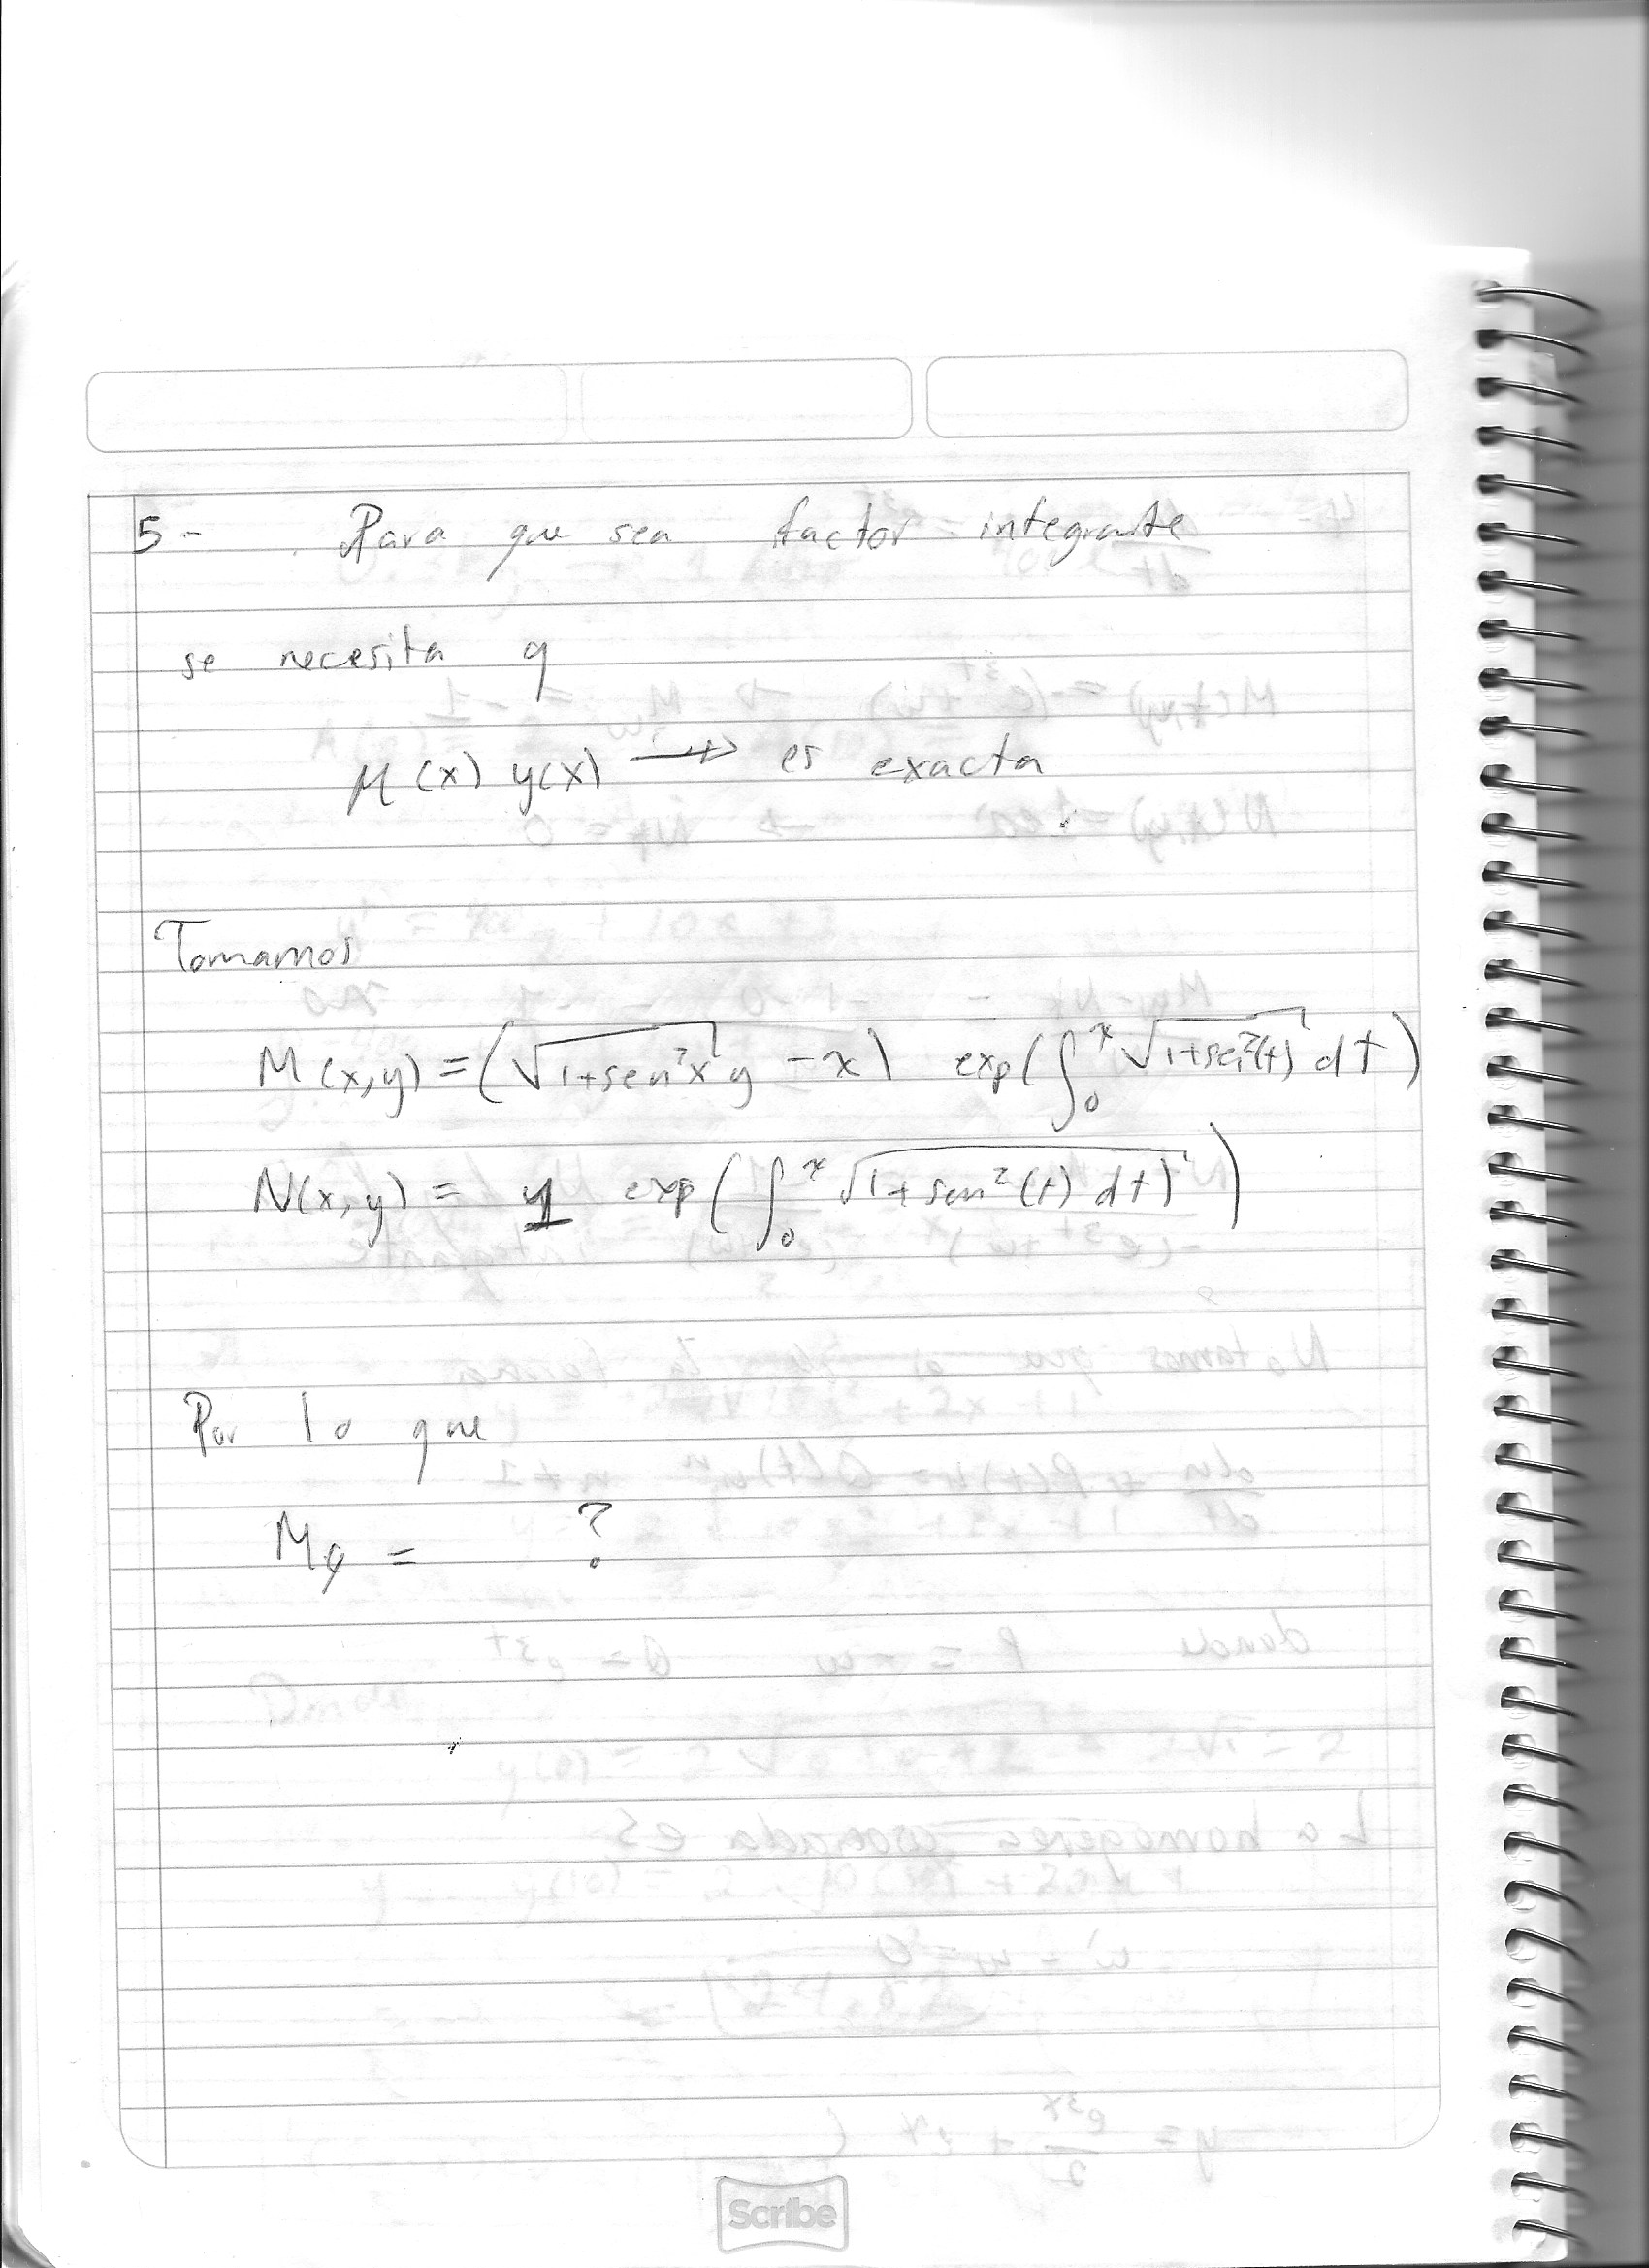 5- Para que sea factor integrante
se necesita q
μ(x) y(x) → es exacta
Tomamos
M(x,y) = (√1+sen²x y - x) exp(∫₀ˣ √1+sen²(t) dt)
N(x,y) = 1 exp(∫₀ˣ √1+sen²(t) dt)
Por lo que
My = ?
Scribe